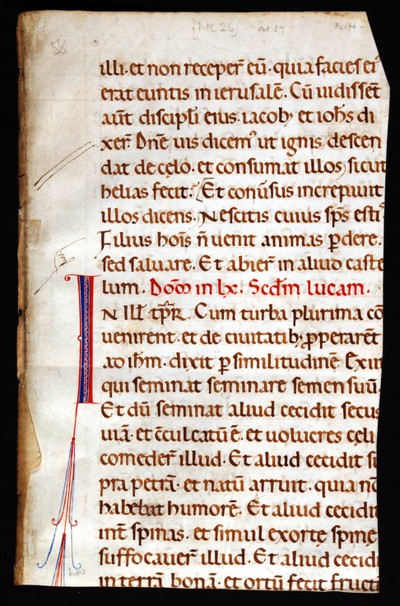 [MC 26]
illi. et non receper̄ eū. quia facies eī
erat euntis in ierusalē. Cū uidissēt
aūt discipl̄i eius. iacob, et ioh̄s di
xer̄. Dn̄e uis dicem, ut ignis descen
dat de celo. et consumat illos, sicut
helias fecit. Et conūsus increpiuit
illos dicens. Nescitis cuius sp̄s esti
Filius hoīs n̄ uenit animas ꝑdere.
sed saluare. Et abier̄ in aliud caste
lum. Dōm in lx. Scd̄m lucam.
IN Ill̄ tp̄r. Cum turba plurima cō
uenirent. et de ciuitatib, ꝓperarēt
ad ih̄m. dixit ꝑ similitudinē. Exiit
qui seminat seminare semen suū.
Et dū seminat aliud cecidit secus
uiā. et c̄culcatū ē. et uolucres celi
comeder̄ illud. Et aliud cecidit su
pra petrā. et natū arruit. quia nō
habebat humorē. Et aliud cecidit
int̄ spinas. et simul exorte spine
suffocauer̄ illud. Et aliud cecidi
in terrā bonā. et ortū fecit fructū